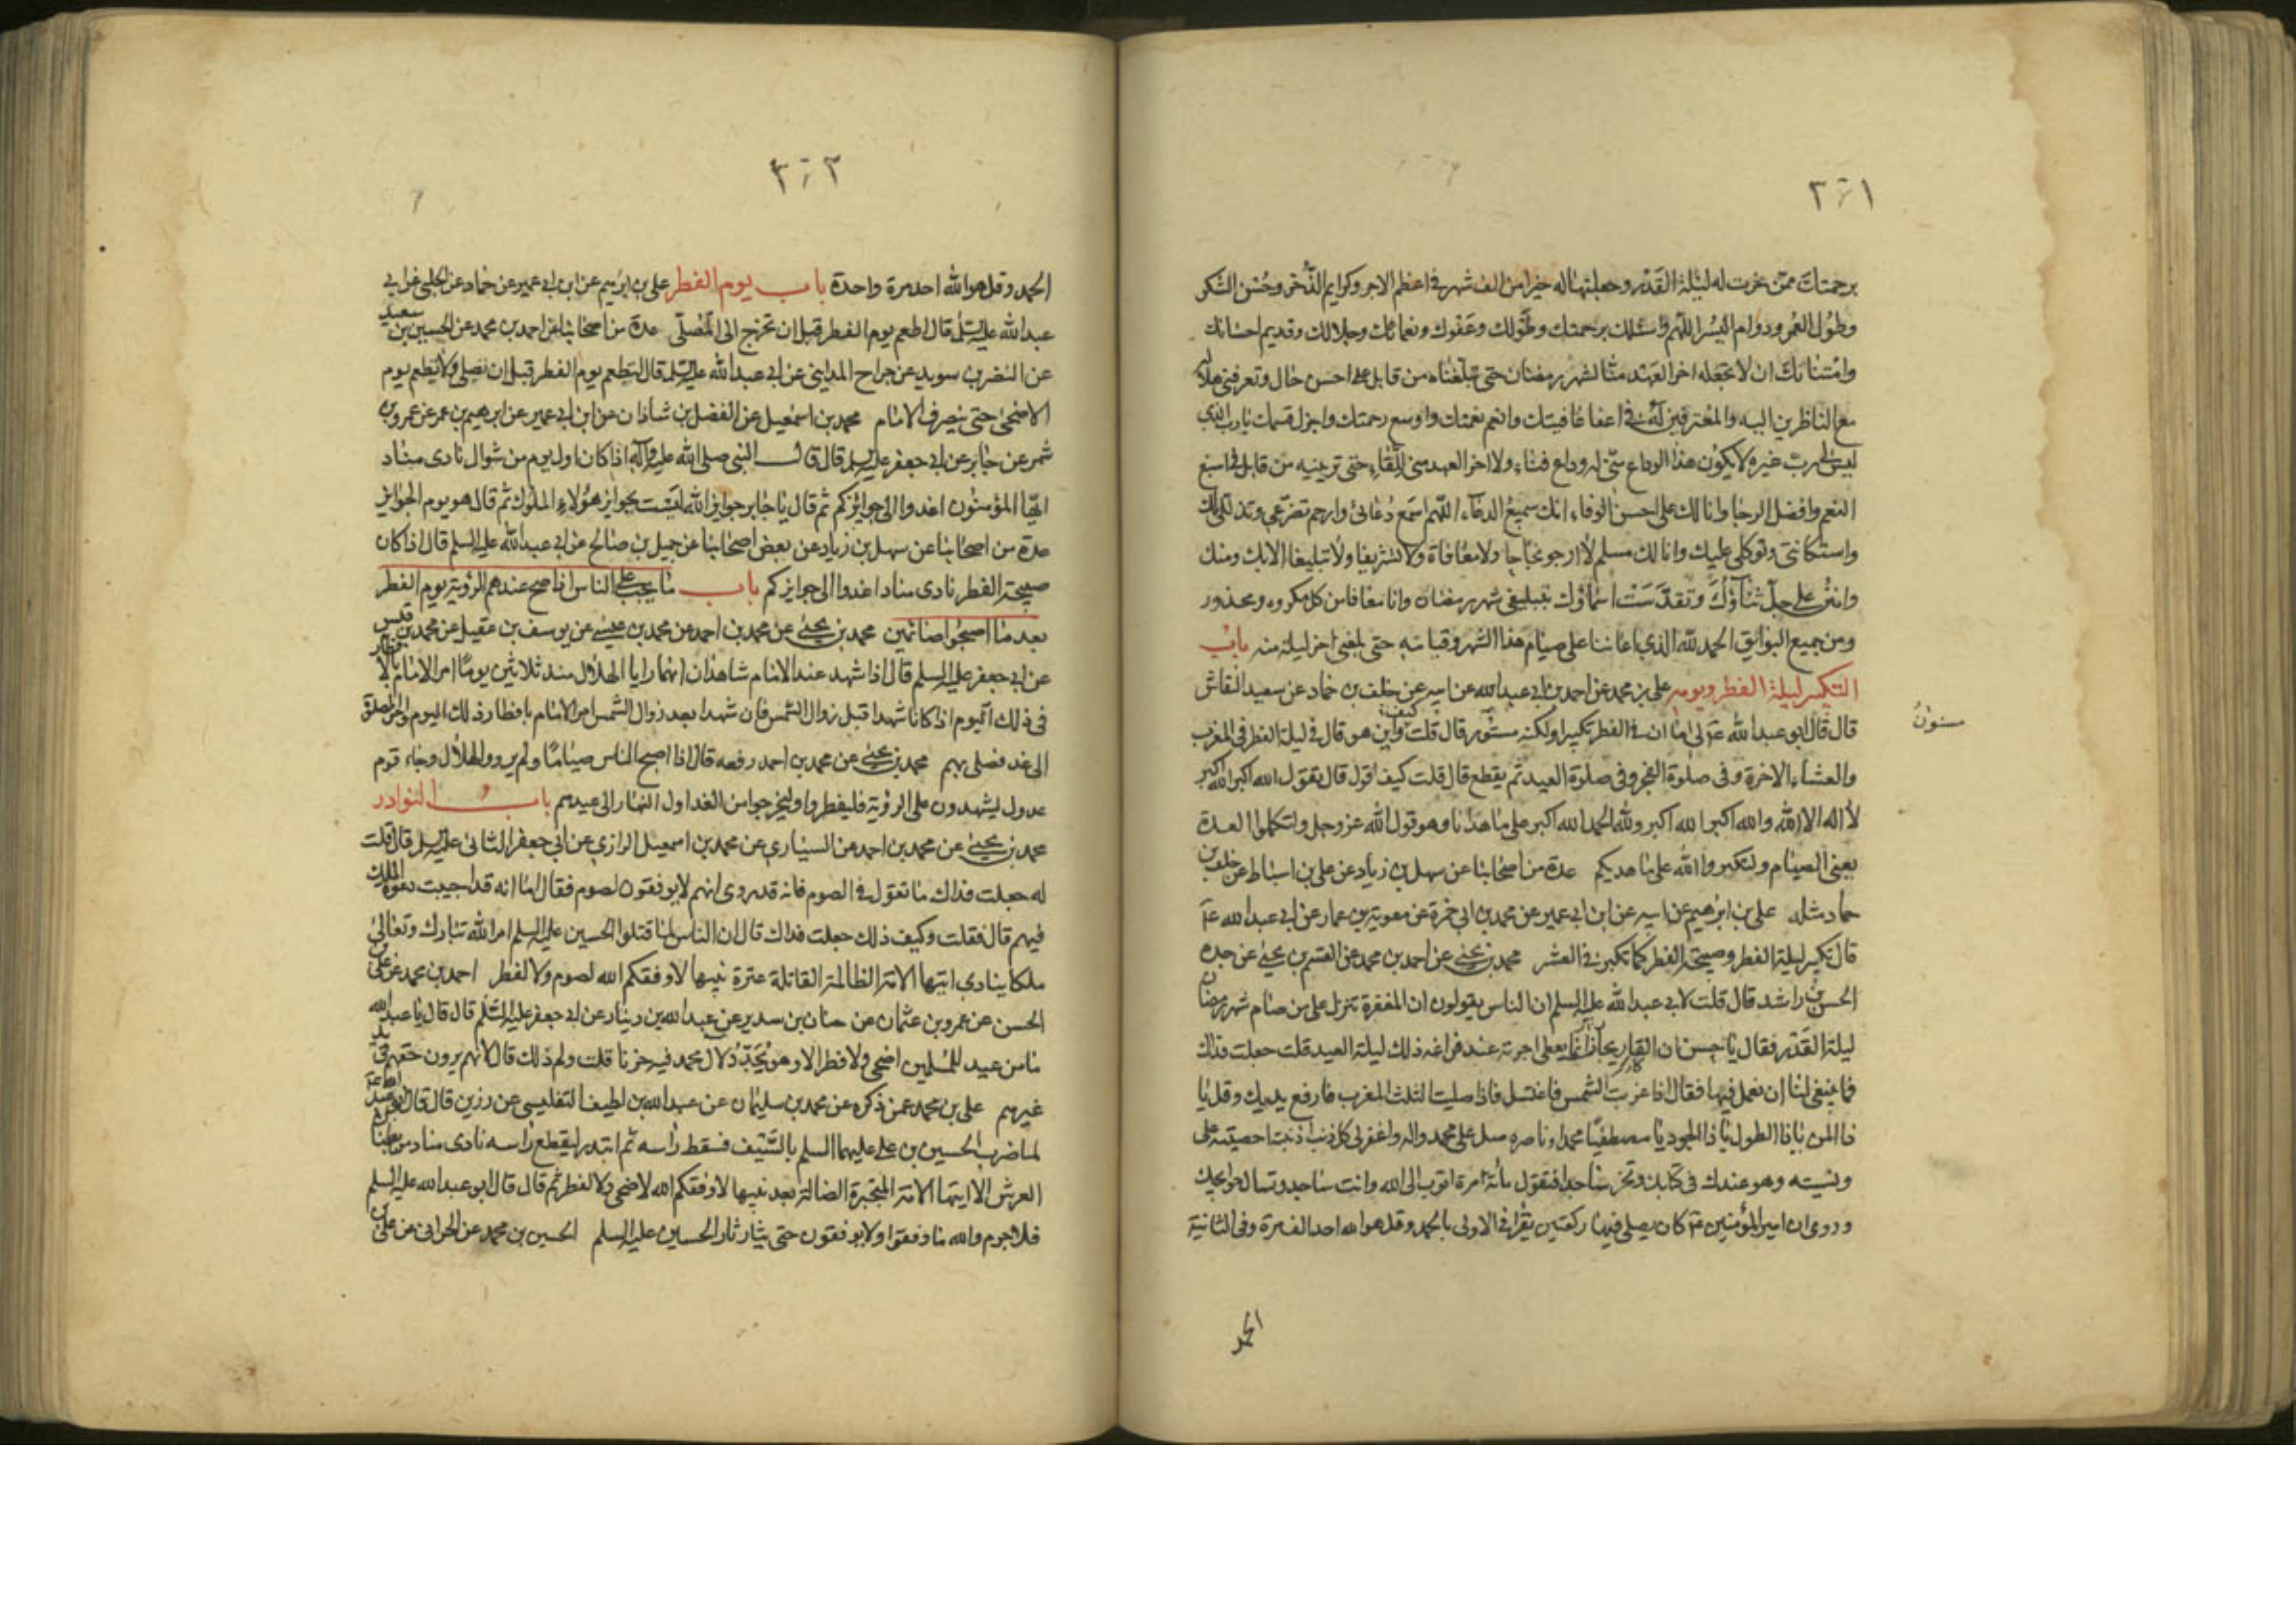 ٣٠١
برحمتك ممن خرت له ليلة القدر وجعلتها له خيرا من الف شهر في اعظم الاجر وكرايم الذخر وحسن الشكر
وطول العمر ودوام اليسر اللهم واسئلك برحمتك وطولك وعفوك ونعمائك وجلالك وقديم احسانك
وامتنانك ان لا تجعله اخر العهد منا لشهر رمضان حتى تبلغناه من قابل على احسن حال وتعرفني هلاله
مع الناظرين اليه والمعترفين له في اعفا عافيتك وانعم نعمتك واوسع رحمتك واجزل قسمك يا رب الذي
ليس لي رب غيره لا يكون هذا الوداع مني له وداع فناء ولا اخر العهد مني للقاء حتى ترينيه من قابل في اسبغ
النعم وافضل الرجا وانا لك على احسن الوفاء انك سميع الدعاء اللهم اسمع دعائي وارحم تضرعي وتذللي لك
واستكانتي وتوكلي عليك وانا لك مسلم لا ارجو نجاحا ولا معافاة ولا تشريفا ولا تبليغا الا بك ومنك
وامنن علي جل ثناؤك وتقدست اسماؤك بتبليغي شهر رمضان وانا معافا من كل مكروه ومحذور
ومن جميع البوايق الحمد لله الذي اعاننا على صيام هذا الشهر وقيامه حتى بلغني اخر ليلة منه باب
التكبير ليلة الفطر ويومه علي بن محمد عن احمد بن ابي عبدالله عن ابيه عن خلف بن حماد عن سعيد النقاش
قال قال ابو عبد الله ع لي اما ان في الفطر تكبيرا ولكنه مستور قال قلت واين هو قال في ليلة الفطر في المغرب
كيف
مسنون
والعشاء الاخرة وفي صلوة الفجر وفي صلوة العيد ثم يقطع قال قلت كيف اقول قال تقول الله اكبر الله اكبر
لا اله الا الله والله اكبر الله اكبر ولله الحمد الله اكبر على ما هدانا وهو قول الله عز وجل ولتكملوا العدة
يعني الصيام ولتكبروا الله على ما هديكم عدة من اصحابنا عن سهل بن زياد عن علي بن اسباط عن خلف بن
حماد مثله علي بن ابرهيم عن ابيه عن ابن ابي عمير عن محمد بن ابي حمزة عن معوية بن عمار عن ابي عبد الله ع
قال تكبر ليلة الفطر وصبيحة الفطر كما تكبر في العشر محمد بن يحيى عن احمد بن محمد عن القسم بن يحيى عن جده
الحسن بن راشد قال قلت لابي عبد الله عليه السلم ان الناس يقولون ان المغفرة تنزل على من صام شهر رمضان
ليلة القدر فقال يا حسن ان القاريجار انما يعطى اجرته عند فراغه ذلك ليلة العيد قلت جعلت فداك
فما ينبغي لنا ان نعمل فيها فقال اذا غربت الشمس فاغتسل فاذا صليت الثلث المغرب فارفع يديك وقل يا
ذا المن يا ذا الطول يا ذا الجود يا مصطفيا محمدا وناصره صل على محمد واله واغفر لي كل ذنب اذنبت احصيته علي
ونسيته وهو عندك في كتابك وتخر ساجدا فتقول مائة مرة اتوب الى الله وانت ساجد وتسال حوايجك
وروى ان امير المؤمنين ع كان يصلي فيها ركعتين يقرا في الاولى بالحمد وقل هو الله احد الف مرة وفي الثانية
الحمد
٣٠٢
الحمد وقل هو الله احد مرة واحدة باب يوم الفطر علي بن ابرهيم عن ابن ابي عمير عن حماد عن الحلبي عن ابي
عبد الله عليه السلم قال اطعم يوم الفطر قبل ان تخرج الى المصلى عدة من اصحابنا عن احمد بن محمد عن الحسين بن سعيد
عن النضر بن سويد عن جراح المدايني عن ابي عبد الله عليه السلم قال ليطعم يوم الفطر قبل ان تصلي ولا يطعم يوم
الاضحى حتى ينصرف الامام محمد بن اسمعيل عن الفضل بن شاذان عن ابن ابي عمير عن ابرهيم بن عمر عن عمرو بن
شمر عن جابر عن ابي جعفر عليه السلم قال قال النبي صلى الله عليه وآله اذا كان اول يوم من شوال نادى مناد
ايها المؤمنون اغدوا الى جوايزكم ثم قال يا جابر جوايز الله ليست بجوايز هؤلاء الملوك ثم قال هو يوم الجوايز
عدة من اصحابنا عن سهل بن زياد عن بعض اصحابنا عن جميل بن صالح عن ابي عبد الله عليه السلم قال اذا كان
صبيحة الفطر نادى مناد اغدوا الى جوايزكم باب ما يجب على الناس اذا صح عندهم الرؤية يوم الفطر
بعد ما اصبحوا صائمين محمد بن يحيى عن محمد بن احمد عن محمد بن عيسى عن يوسف بن عقيل عن محمد بن قيس
عن ابي جعفر عليه السلم قال اذا شهد عند الامام شاهدان انهما رايا الهلال منذ ثلاثين يوما امر الامام بالافطار
في ذلك اليوم اذا كانا شهدا قبل زوال الشمس فان شهدا بعد زوال الشمس امر الامام بافطار ذلك اليوم واخر الصلوة
الى غد فصلى بهم محمد بن يحيى عن محمد بن احمد رفعه قال اذا اصبح الناس صياما ولم يروا الهلال وجاء قوم
عدول يشهدون على الرؤية فليفطروا وليخرجوا من الغد اول النهار الى عيدهم باب النوادر
محمد بن يحيى عن محمد بن احمد عن السياري عن محمد بن اسمعيل الرازي عن ابي جعفر الثاني عليه السلم قال قلت
له جعلت فداك ما تقول في الصوم فانه قد روى انهم لا يوفقون لصوم فقال اما انه قد اجيبت دعوة الملك
فيهم قال فقلت وكيف ذلك جعلت فداك قال ان الناس لما قتلوا الحسين عليه السلم امر الله تبارك وتعالى
ملكا ينادي ايتها الامة الظالمة القاتلة عترة نبيها لا وفقكم الله لصوم ولا لفطر احمد بن محمد عن علي بن
الحسن عن عمرو بن عثمان عن حنان بن سدير عن عبد الله بن دينار عن ابي جعفر عليه السلم قال قال يا عبد الله
ما من عيد للمسلمين اضحى ولا فطر الا وهو يجدد لال محمد فيه حزنا قلت ولم ذلك قال لانهم يرون حقهم في يد
غيرهم علي بن محمد عمن ذكره عن محمد بن سليمان عن عبد الله بن لطيف التفليسي عن رزين قال قال ابو عبد الله ع
لما ضرب الحسين بن علي عليهما السلم بالسيف فسقط راسه ثم ابتدر ليقطع راسه نادى مناد من بطنان
العرش الا ايتها الامة المتجبرة الضالة بعد نبيها لا وفقكم الله لاضحى ولا لفطر ثم قال قال ابو عبد الله عليه السلم
فلا جرم والله ما وفقوا ولا يوفقون حتى يثار ثار الحسين عليه السلم الحسين بن محمد عن الحراني عن علي بن